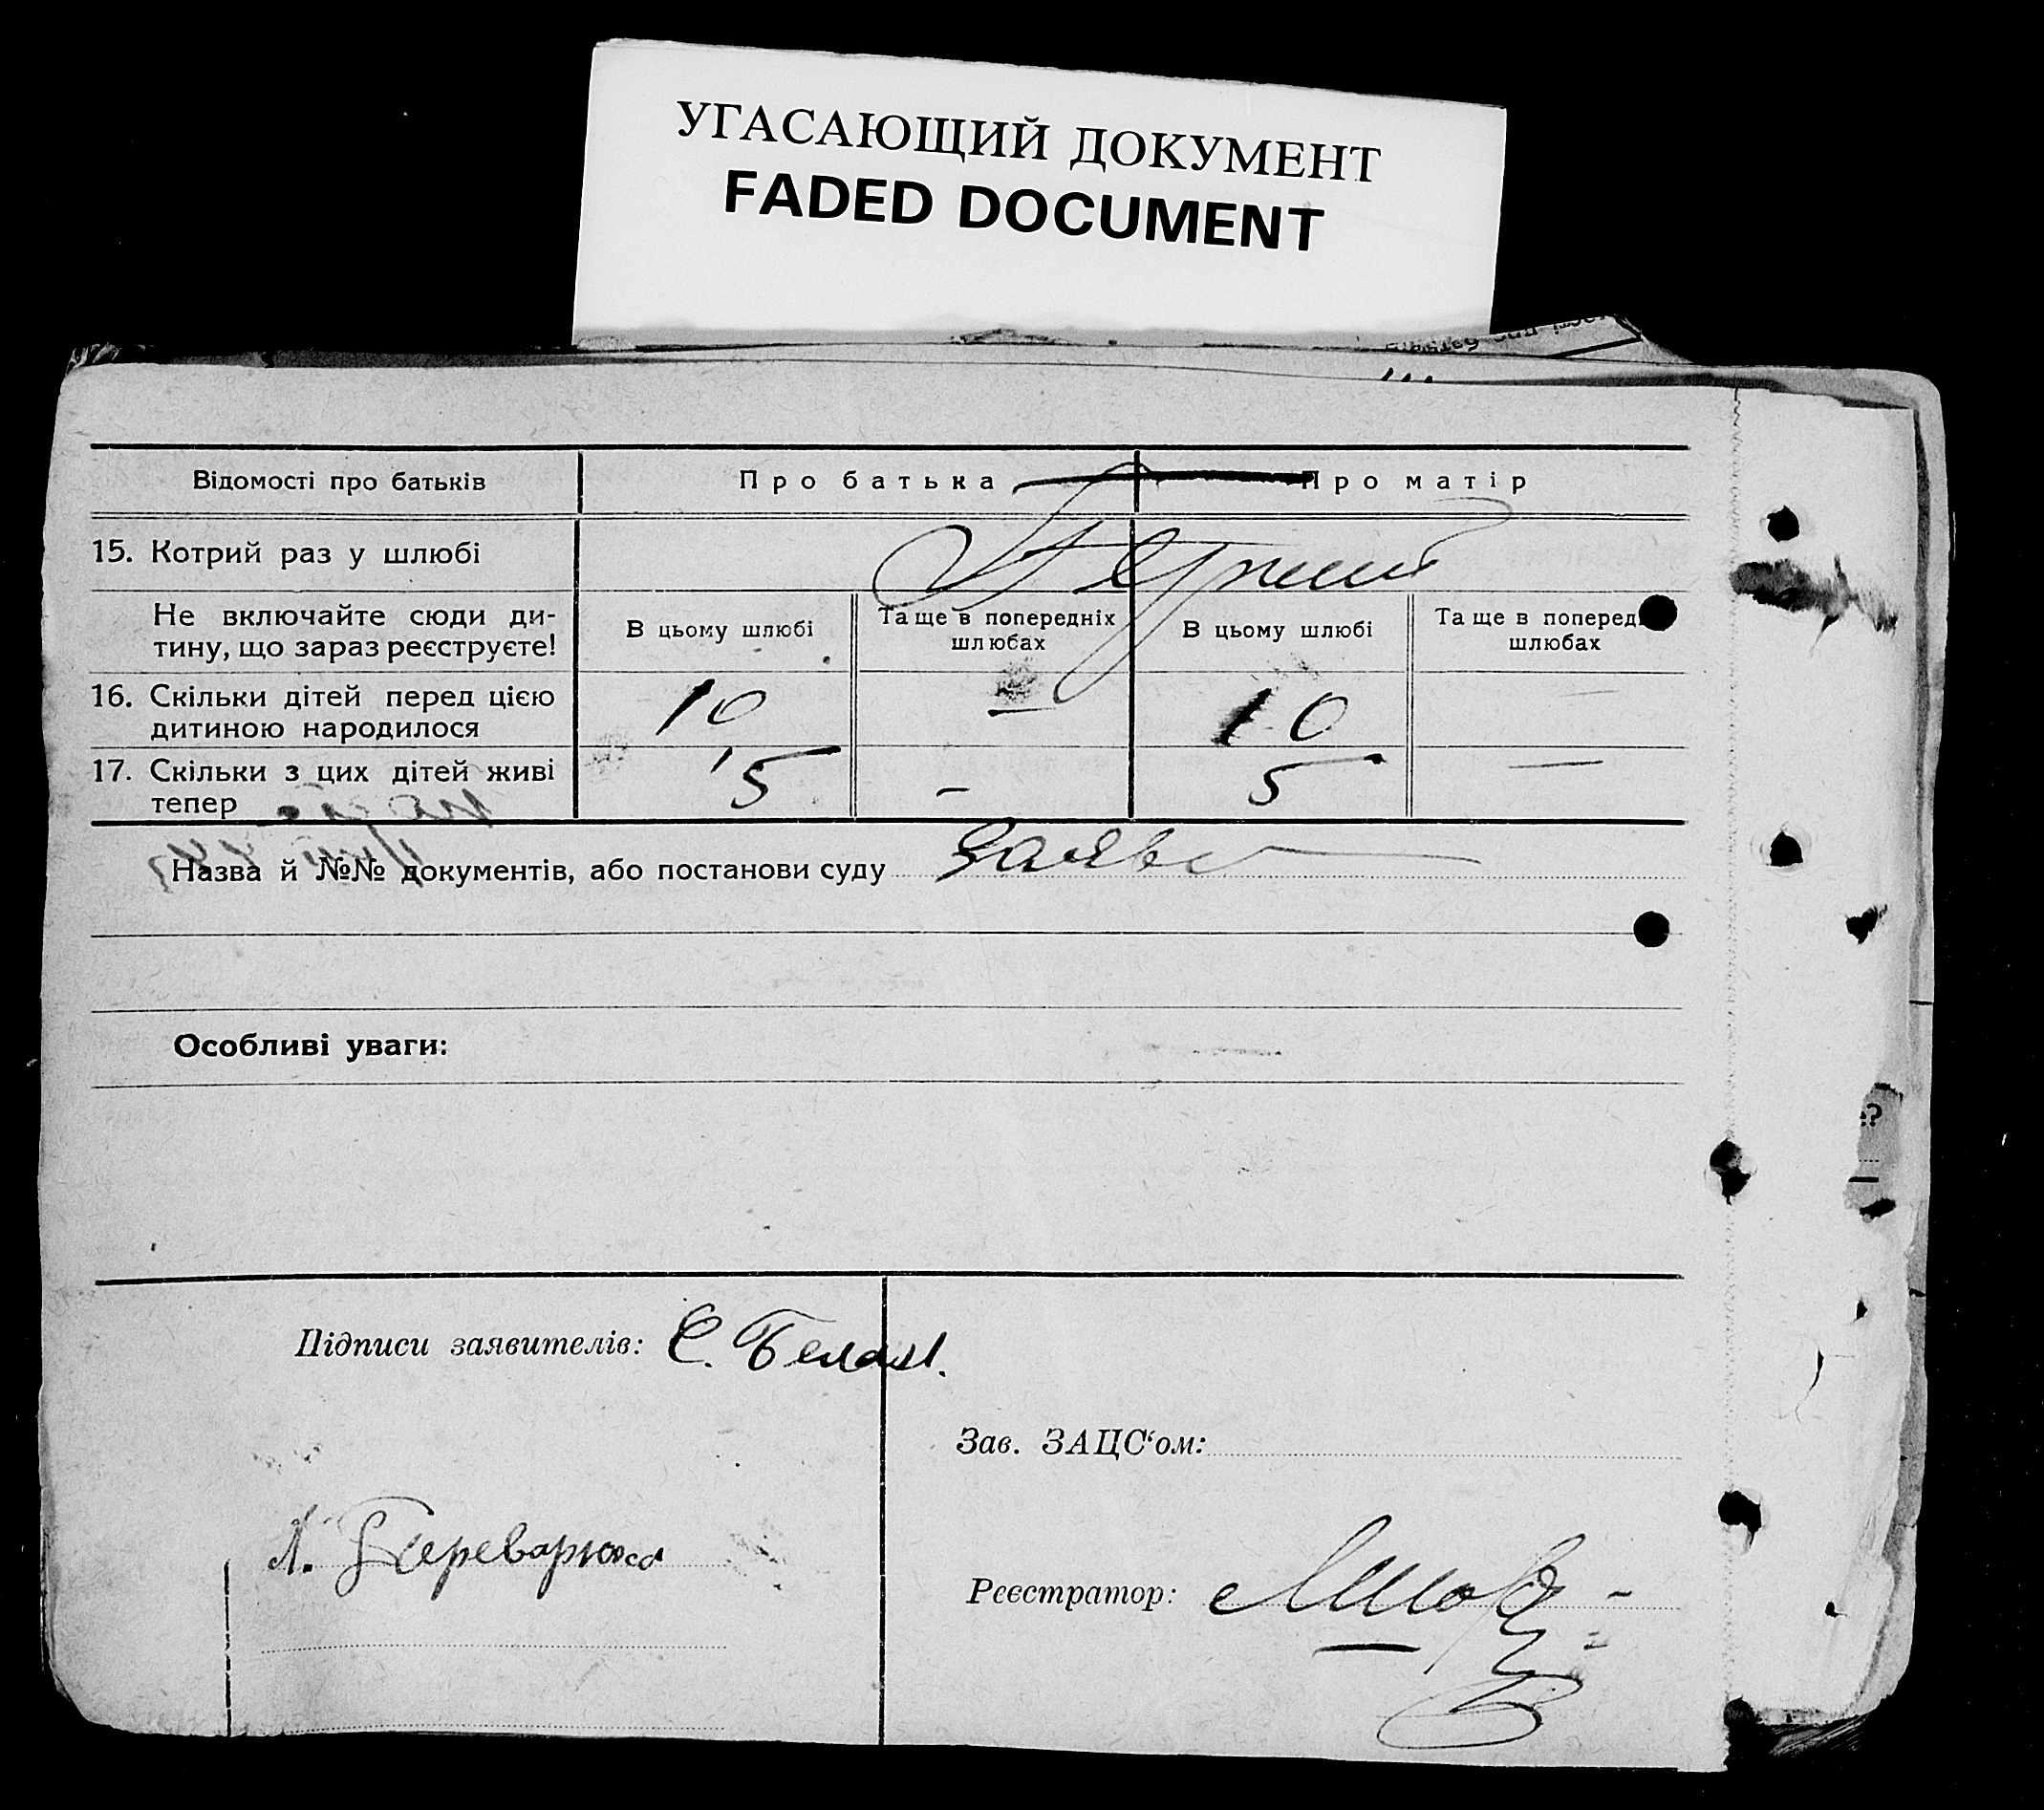 УГАСАЮЩИЙ ДОКУМЕНТ
FADED DOCUMENT
Відомості про батьків
Про батька
Про матір
15. Котрий раз у шлюбі
Перший
Не включайте сюди ди-
тину, що зараз реєструєте!
В цьому шлюбі
Та ще в попередніх
шлюбах
В цьому шлюбі
Та ще в поперед
шлюбах
16. Скільки дітей перед цією
дитиною народилося
10 — 10 —
17. Скільки з цих дітей живі
тепер
5 – 5 —
Назва й №№ документів, або постанови суду Заява
Особливі уваги:
Підписи заявителів: С.
Зав. ЗАЦС‘ом:
Л.
Реєстратор: